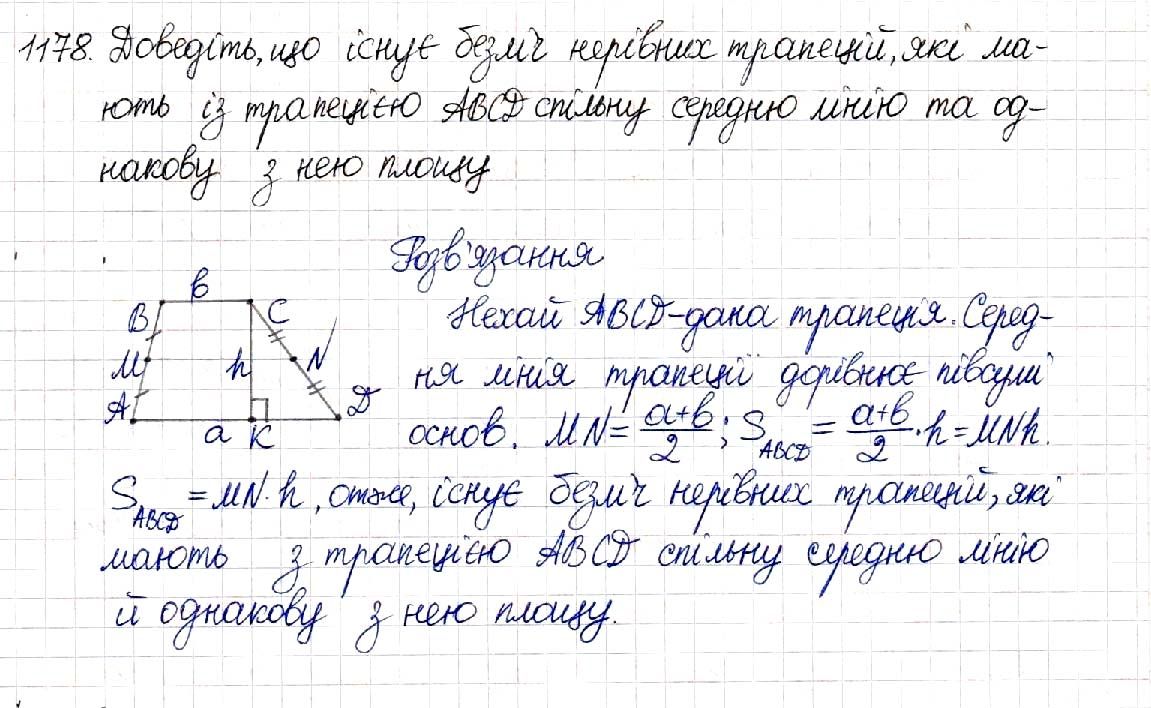 1178. Доведіть, що існує безліч нерівних трапецій, які ма-
ють із трапецією ABCD спільну середню лінію та од-
накову з нею площу
Розв'язання
b
B
C
Нехай ABCD-дана трапеція. Серед-
M
h
N
ня лінія трапеції дорівнює півсумі
A
D
a
K
основ. MN = (a+b)/2; S_ABCD = (a+b)/2 · h = MNh.
S_ABCD = MN·h, отже, існує безліч нерівних трапецій, які
мають з трапецією ABCD спільну середню лінію
й однакову з нею площу.